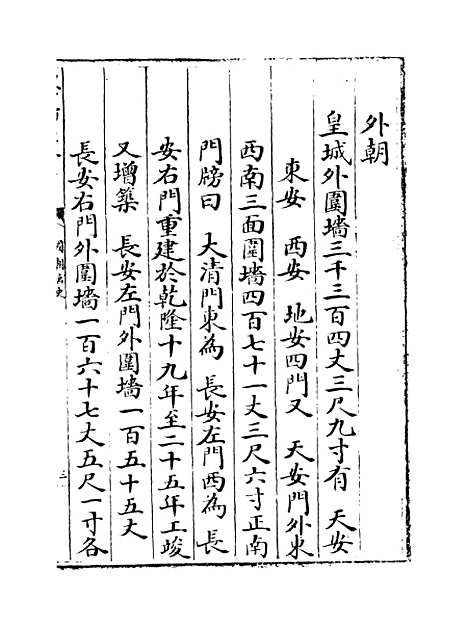 外朝
皇城外圍墻三千三百四丈三尺九寸有 天安
東安 西安 地安四門又 天安門外東
西南三面圍墻四百七十一丈三尺六寸正南
門牓曰 大清門東為 長安左門西為 長
安右門重建於乾隆十九年至二十五年工竣
又增築 長安左門外圍墻一百五十五丈
長安右門外圍墻一百六十七丈五尺一寸各
三